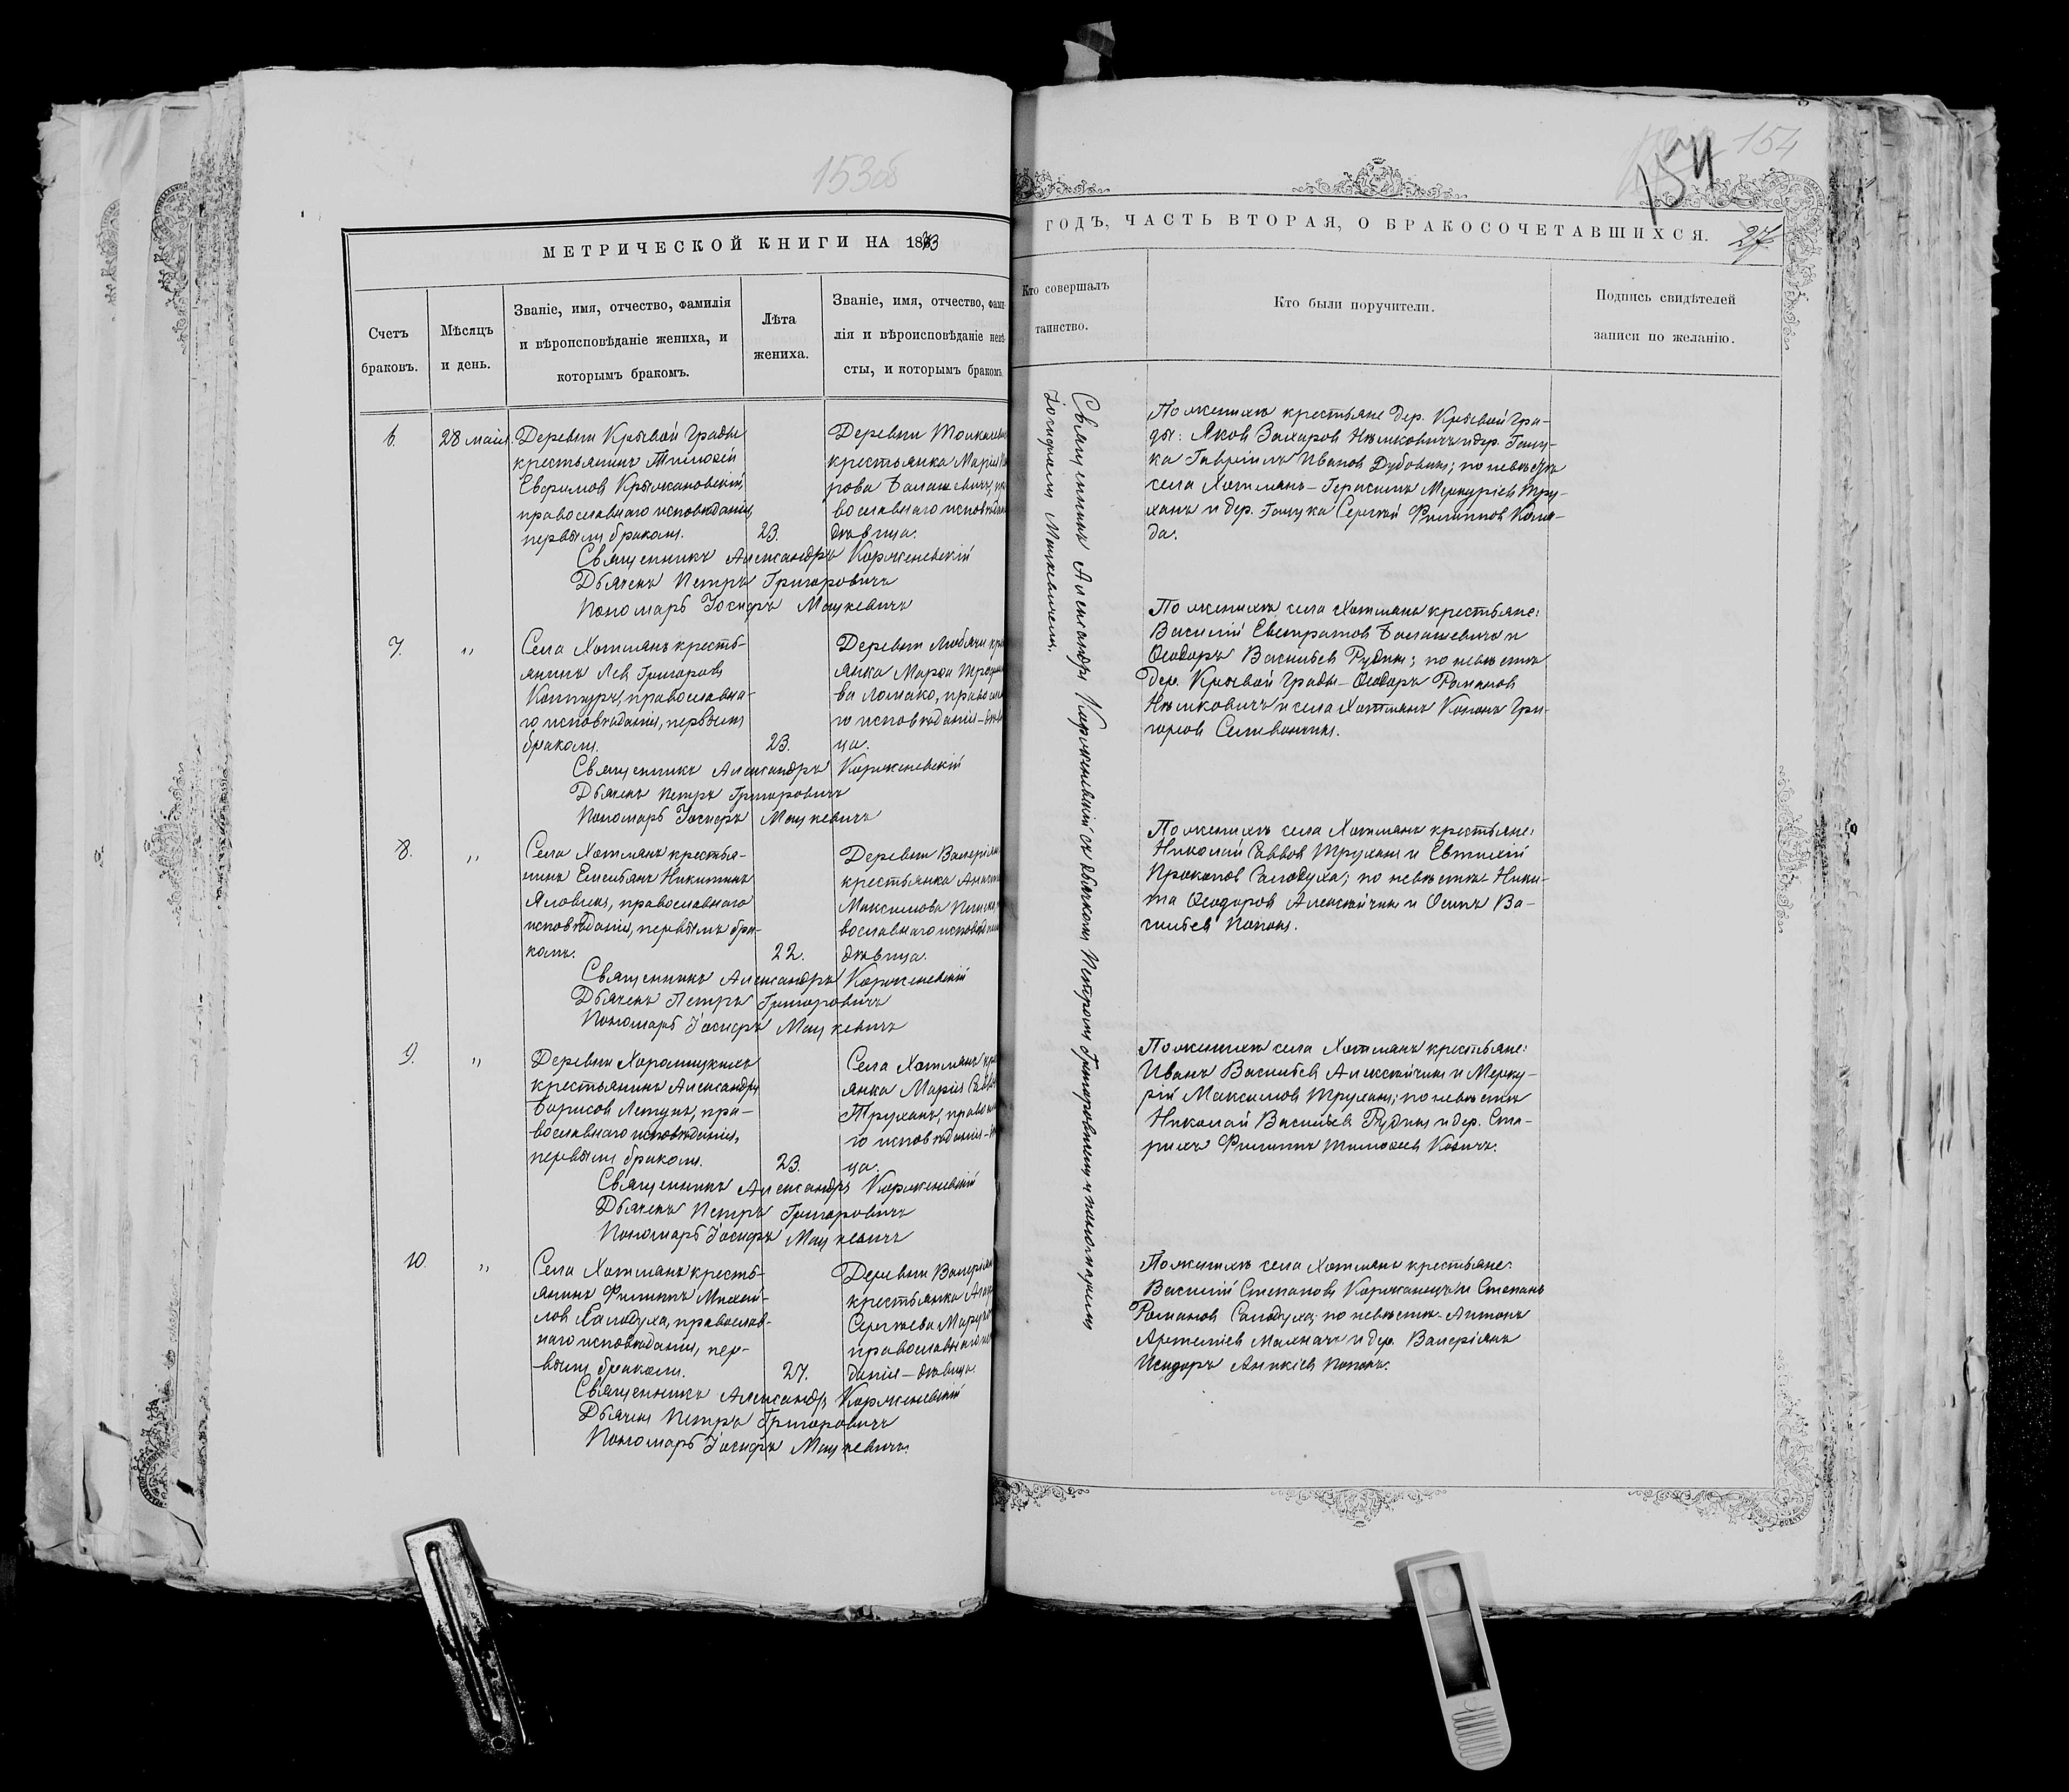 153об
МЕТРИЧЕСКОЙ КНИГИ НА 1883
Счетъ
браковъ.
Мѣсяцъ
и день.
Званіе, имя, отчество, фамилія
и вѣроисповѣданіе жениха, и
которымъ бракомъ.
Лѣта
жениха.
Званіе, имя, отчество, фами-
лія и вѣроисповѣданіе невѣ-
сты, и которымъ бракомъ.
6. 28 мая.
Деревни Кривой Грады
крестьянинъ Тимоѳей
Ефимовъ Крыжановскій,
православнаго исповѣданія,
первымъ бракомъ.
23.
Деревни
крестьянка Марія
рова Балашевичъ,
вославнаго исповѣда
дѣвица.
Священникъ Александръ Корженевскій
Дьячекъ Петръ Григоровичъ
Пономарь Іосифъ Мацкевичъ
7. „
Села Хотлянъ кресть-
янинъ Левъ Григоровъ
православна-
го исповѣданія, первымъ
бракомъ.
23.
Деревни Любячи
янка Марѳа
ва Ломако,
го исповѣданія
ца.
Священникъ Александръ Корженевскій
Дьячекъ Петръ Григоровичъ
Пономарь Іосифъ Мацкевичъ
8. „
Села Хотлянъ крестья-
нинъ Емельянъ Никитинъ
Яловикъ, православнаго
исповѣданія, первымъ бра-
комъ.
22.
Деревни Валеріянъ
крестьянка
Максимова
вославнаго исповѣ
дѣвица.
Священникъ Александръ Корженевскій
Дьячекъ Петръ Григоровичъ
Пономарь Іосифъ Мацкевичъ
9. „
Деревни Хорошицкихъ
крестьянинъ Александръ
Борисовъ Летунъ, пра-
вославнаго исповѣданія,
первымъ бракомъ.
23.
Села Хотлянъ
янка Марія
Труханъ,
го исповѣданія
ца.
Священникъ Александръ Корженевскій
Дьячекъ Петръ Григоровичъ
Пономарь Іосифъ Мацкевичъ
10. „
Села Хотлянъ кресть-
янинъ Филиппъ Михай-
ловъ Саладуха, православ-
наго исповѣданія, пер-
вымъ бракомъ.
27.
Деревни Валеріянъ
крестьянка
Сергѣева
православнаго
данія — дѣвица.
Священникъ Александръ Корженевскій
Дьячекъ Петръ Григоровичъ
Пономарь Іосифъ Мацкевичъ
154
154
ГОДЪ, ЧАСТЬ ВТОРАЯ, О БРАКОСОЧЕТАВШИХСЯ.
27.
Кто совершалъ
таинство.
Кто были поручители.
Подпись свидѣтелей
записи по желанію.
Священникъ Александръ Корженевскій съ дьячкомъ Петромъ Григоровичемъ и пономаремъ
Іосифомъ Мацкевичемъ.
По женихѣ крестьяне дер. Кривой Гра-
ды: Яковъ Захаровъ Нѣмковичъ и дер. Гащу-
ка Гавріилъ Ивановъ Дубовикъ; по невѣстѣ
села Хотлянъ — Герасимъ Меркуріевъ Тру-
ханъ и дер. Гащука Сергѣй Филипповъ Коля-
да.
По женихѣ села Хотлянъ крестьяне:
Василій Евстратовъ Балашевичъ и
Ѳеодоръ Васильевъ Рудикъ; по невѣстѣ
дер. Кривой Грады — Ѳеодоръ Романовъ
Нѣмковичъ и села Хотлянъ Кононъ Гри-
горовъ Селивончикъ.
По женихѣ села Хотлянъ крестьяне:
Николай Саввовъ Труханъ и Евтихій
Прокоповъ Саладуха; по невѣстѣ — Ники-
та Ѳеодоровъ Алексѣйчикъ и Осипъ Ва-
сильевъ Попокъ.
По женихѣ села Хотлянъ крестьяне:
Иванъ Васильевъ Алексѣйчикъ и Мерку-
рій Максимовъ Труханъ; по невѣстѣ
Николай Васильевъ Рудикъ и дер. Ста-
рикъ Филиппъ Тимоѳеевъ Козичъ.
По женихѣ села Хотлянъ крестьяне:
Василій Степановъ Коржанецъ и Степанъ
Романовъ Саладуха; по невѣстѣ — Антонъ
Артеміевъ Махначъ и дер. Валеріянъ
Исидоръ Аникіевъ Попокъ.